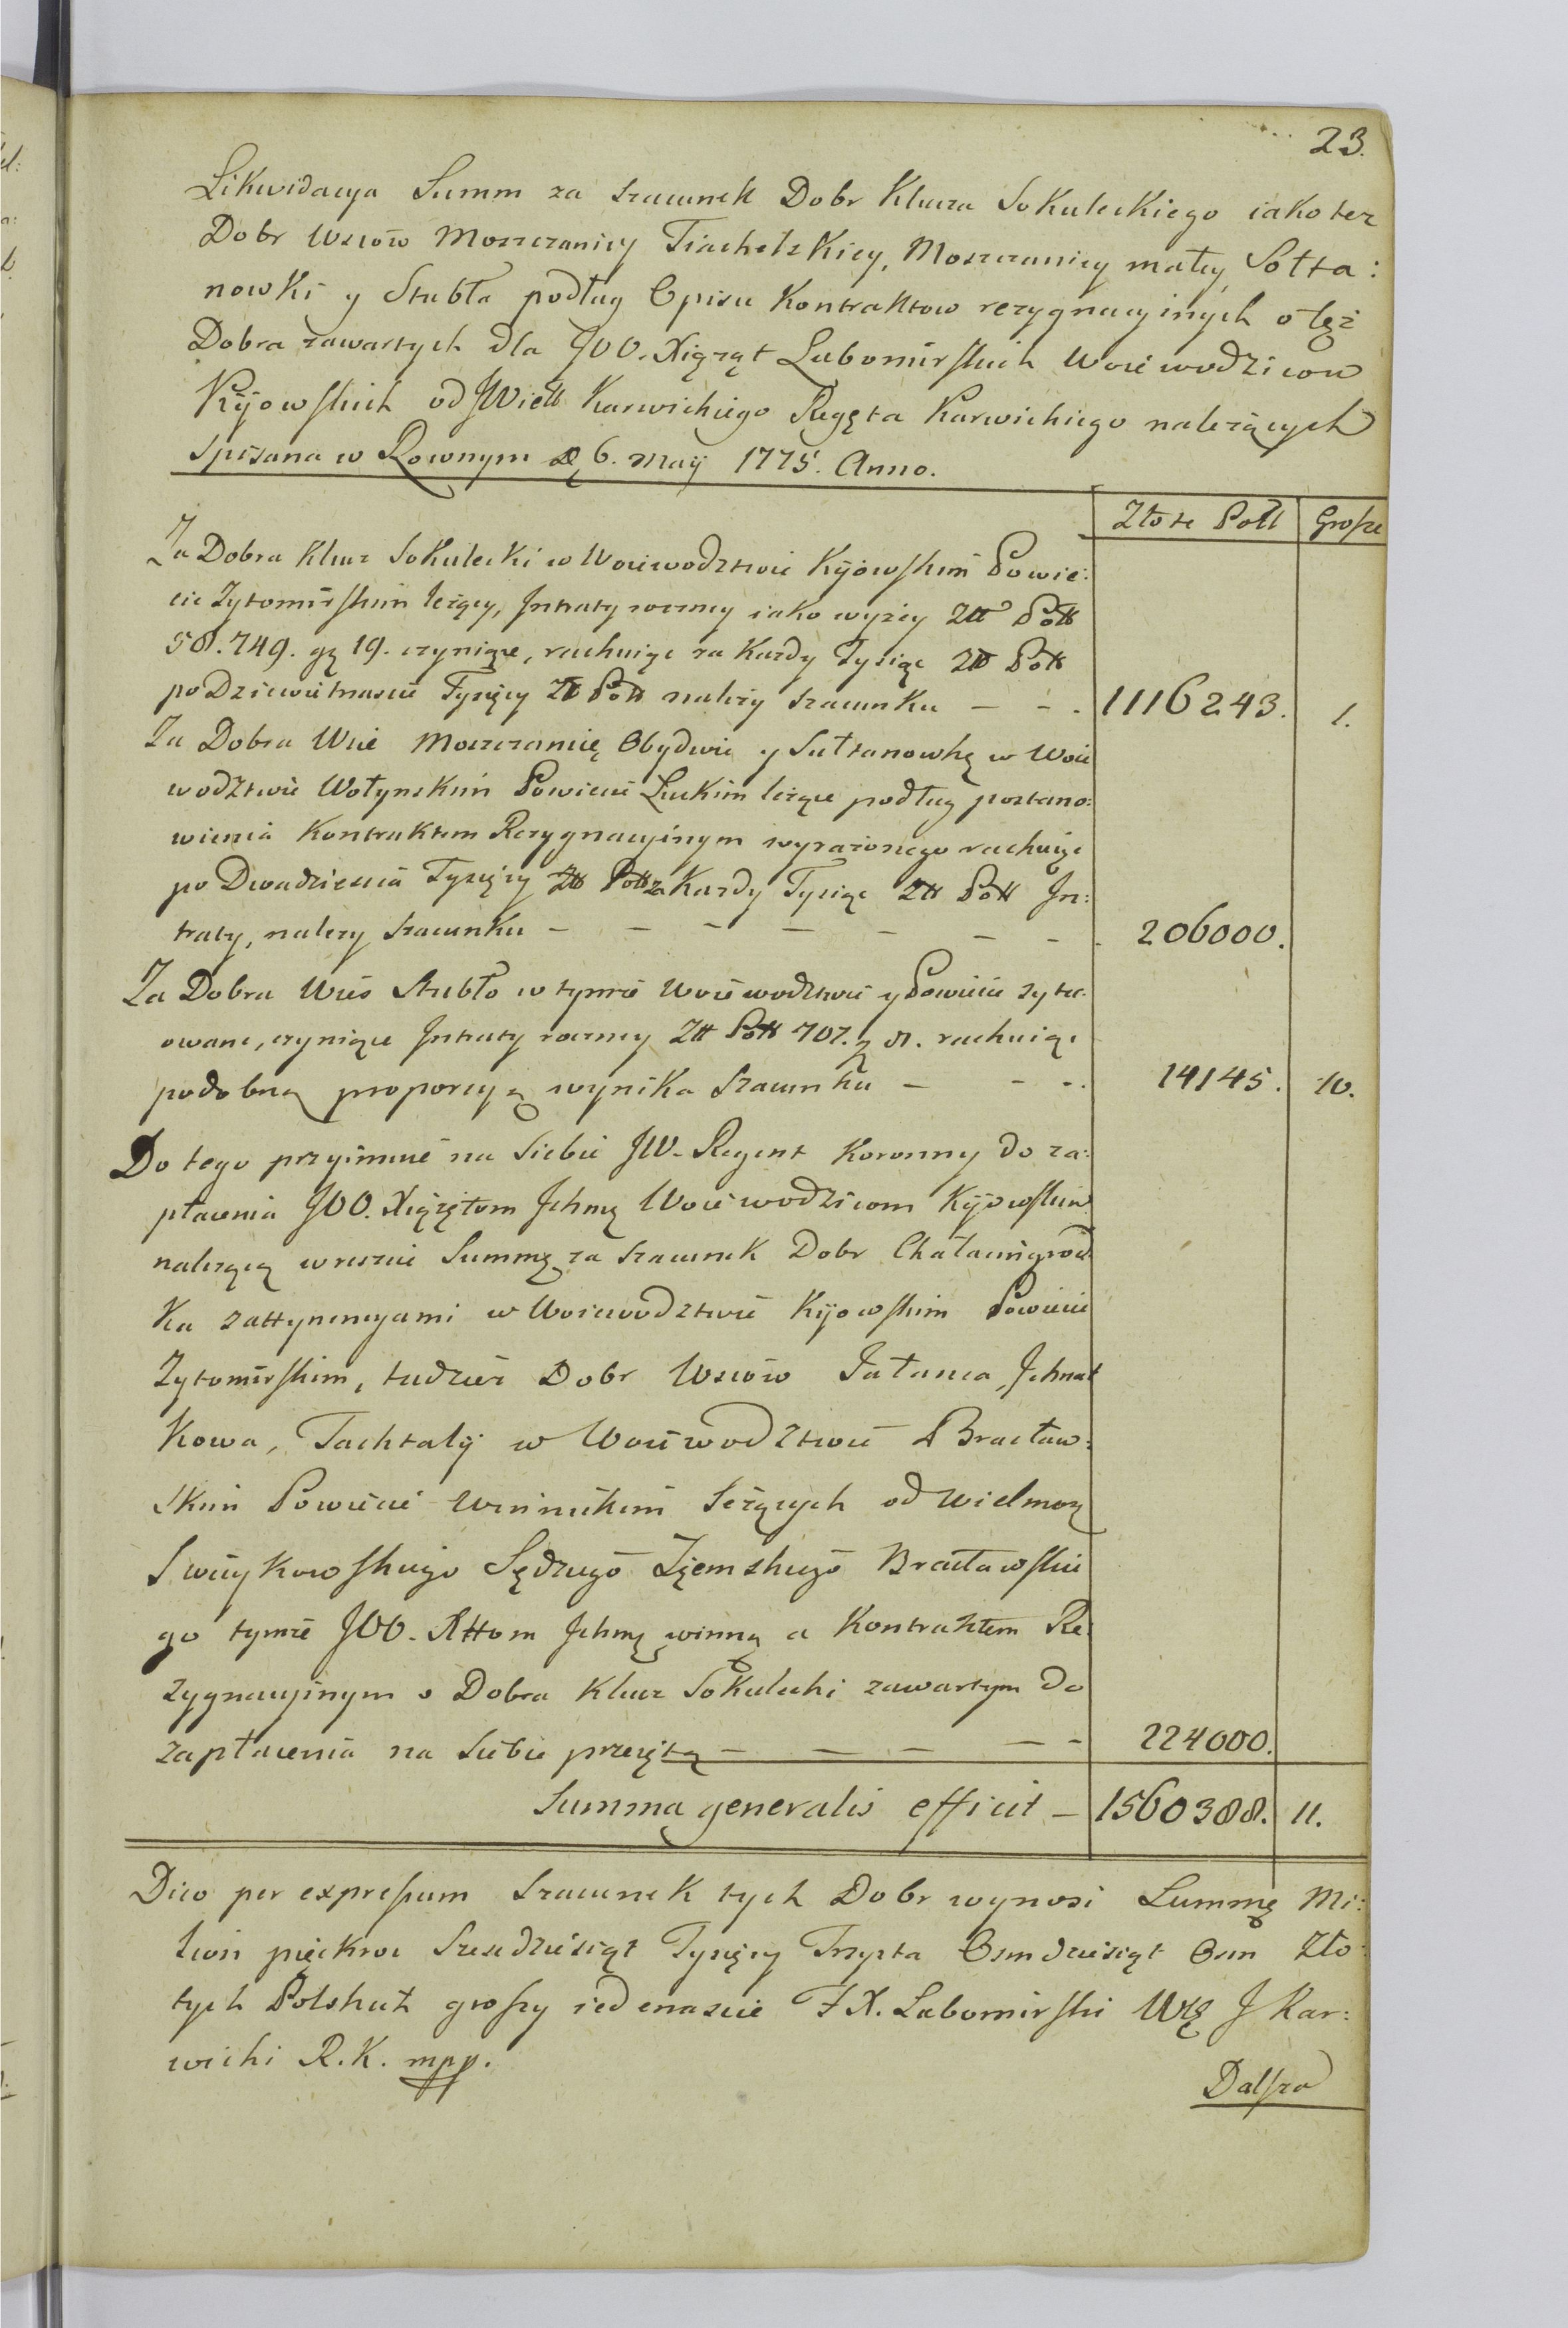 23.
Likwidacya Summ za szacunek Dobr Klucza Sokuleckiego iako tez
Dobr Wsiów Moszczanicy Trachetskiey, Moszczanicy małey, Sołta:
nowki y Stubła podług Opisu Kontraktow rezygnacyinych o też
Dobra zawartych dla JOO. Xiążąt Lubomirskich Woiewodzicow
Kijowskich od JWiell Karwickiego Regęta Karwickiego należących
spisana w Rownym D. 6. Maij 1775. Anno.
Złote Poll Grosze
Za Dobra Klucz Sokulecki w Woiewodztwie Kijowskim Powie:
cie Zytomirskim leżący, Intraty roczney iako wyżey Złł Poll
58.749. gę 19. czyniące, rachuiąc za Kazdy Tysiąc Złł Poll
po Dziewietnascie Tysięcy Złł Poll należy szacunku - - - 1116243. 1.
Za Dobra Wsie Moszczanicę Obydwie y Sułtanowkę w Woie
wodztwie Wołynskim Powiecie Łuckim leżące podług postano:
wienia Kontraktem Rezygnacyinym wyrażonego rachuiąc
po Dwadziescia Tysięcy Złł Poll za Kazdy Tysiąc Złł Poll In:
traty, nalezy szacunku - - - - - - - 206000.
Za Dobra Wies Stubło w tymże Woiewodztwie y Powiecie sytu:
owane, czyniące Intraty roczney Złł Poll 707. g 8. rachuiąc
podobną proporcyą wynika Szacunku - - - 14145. 10.
Do tego przyimuie na siebie JW. Regent Koronny do za:
płacenia JOO. Xiążętom Ichmę Woiewodzicom Kijowskim
należącą wreszcie Summę za szacunek Dobr Chałaimgrod
Ka zattynencyami w Woiewodztwie Kijowskim Powiecie
Zytomirskim, tudzież Dobr Wsiów Jatanca, Ichnat
Kowa, Tachtaly w Woiewodztwie Bracław:
skim Powiecie Winnickim leżących od Wielmoz
Swieykowskiego Sędziego Zięmskiego Bracławskie
go tymże JOO. Xttom Ichmę winną a Kontraktem Re:
zygnacyinym o Dobra Klucz Sokulecki zawartym do
zapłacenia na siebie przeiętą - - - - - 224000.
Summa generalis efficit - 1560388. 11.
Dico per expressum Szacunek tych Dobr wynosi Summę Mi:
lion pięckroc Szescdziesiąt Tysięcy Trzysta Osmdziesiąt Osm Zło:
tych Polskich groszy iedenascie F X. Lubomirski WK J Kar:
wicki R.K. mpp.
Dalsza